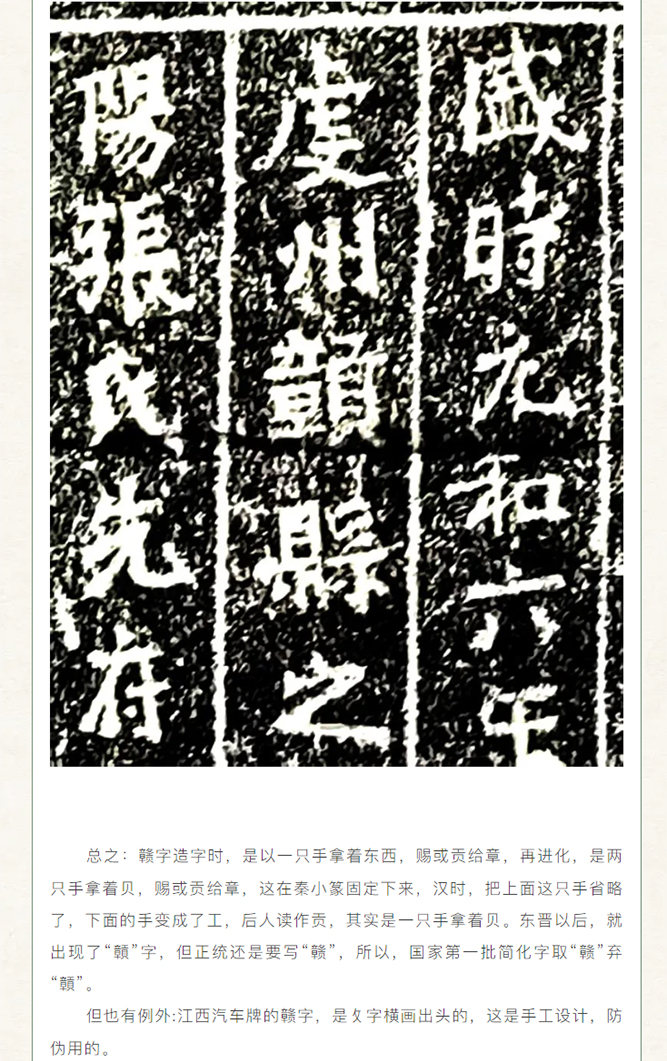 時元和六年
虔州贑縣之
陽張氏先府
总之：赣字造字时，是以一只手拿着东西，赐或贡给章，再进化，是两
只手拿着贝，赐或贡给章，这在秦小篆固定下来，汉时，把上面这只手省略
了，下面的手变成了工，后人读作贡，其实是一只手拿着贝。东晋以后，就
出现了“贑”字，但正统还是要写“赣”，所以，国家第一批简化字取“赣”弃
“贑”。
但也有例外:江西汽车牌的赣字，是攵字横画出头的，这是手工设计，防
伪用的。